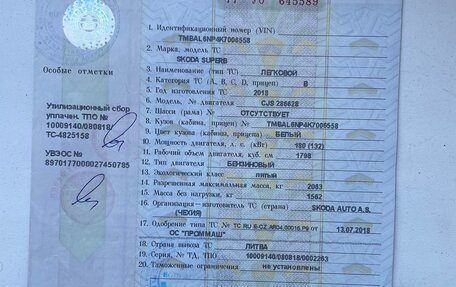 77 УО 645589
1. Идентификационный номер (VIN)
TMBAL6NP4K7006558
2. Марка, модель ТС
SKODA SUPERB
3. Наименование (тип ТС) ЛЕГКОВОЙ
4. Категория ТС (А, В, С, D, прицеп) B
5. Год изготовления ТС 2018
6. Модель, № двигателя CJS 286628
7. Шасси (рама) № ОТСУТСТВУЕТ
8. Кузов (кабина, прицеп) № TMBAL6NP4K7006558
9. Цвет кузова (кабины, прицепа) БЕЛЫЙ
10. Мощность двигателя, л. с. (кВт) 180 (132)
11. Рабочий объем двигателя, куб. см 1798
12. Тип двигателя БЕНЗИНОВЫЙ
13. Экологический класс пятый
14. Разрешенная максимальная масса, кг 2063
15. Масса без нагрузки, кг 1562
16. Организация-изготовитель ТС (страна) SKODA AUTO A.S.
(ЧЕХИЯ)
17. Одобрение типа ТС № ТС RU E-CZ.MP04.00016.P9 от 13.07.2018
ОС "ПРОММАШ"
18. Страна вывоза ТС ЛИТВА
19. Серия, № ТД, ТПО 10009140/080818/0002263
20. Таможенные ограничения не установлены
Особые отметки
Утилизационный сбор
уплачен. ТПО №
10009140/080818/
ТС-4825158
УВЭОС №
8970177000027450785